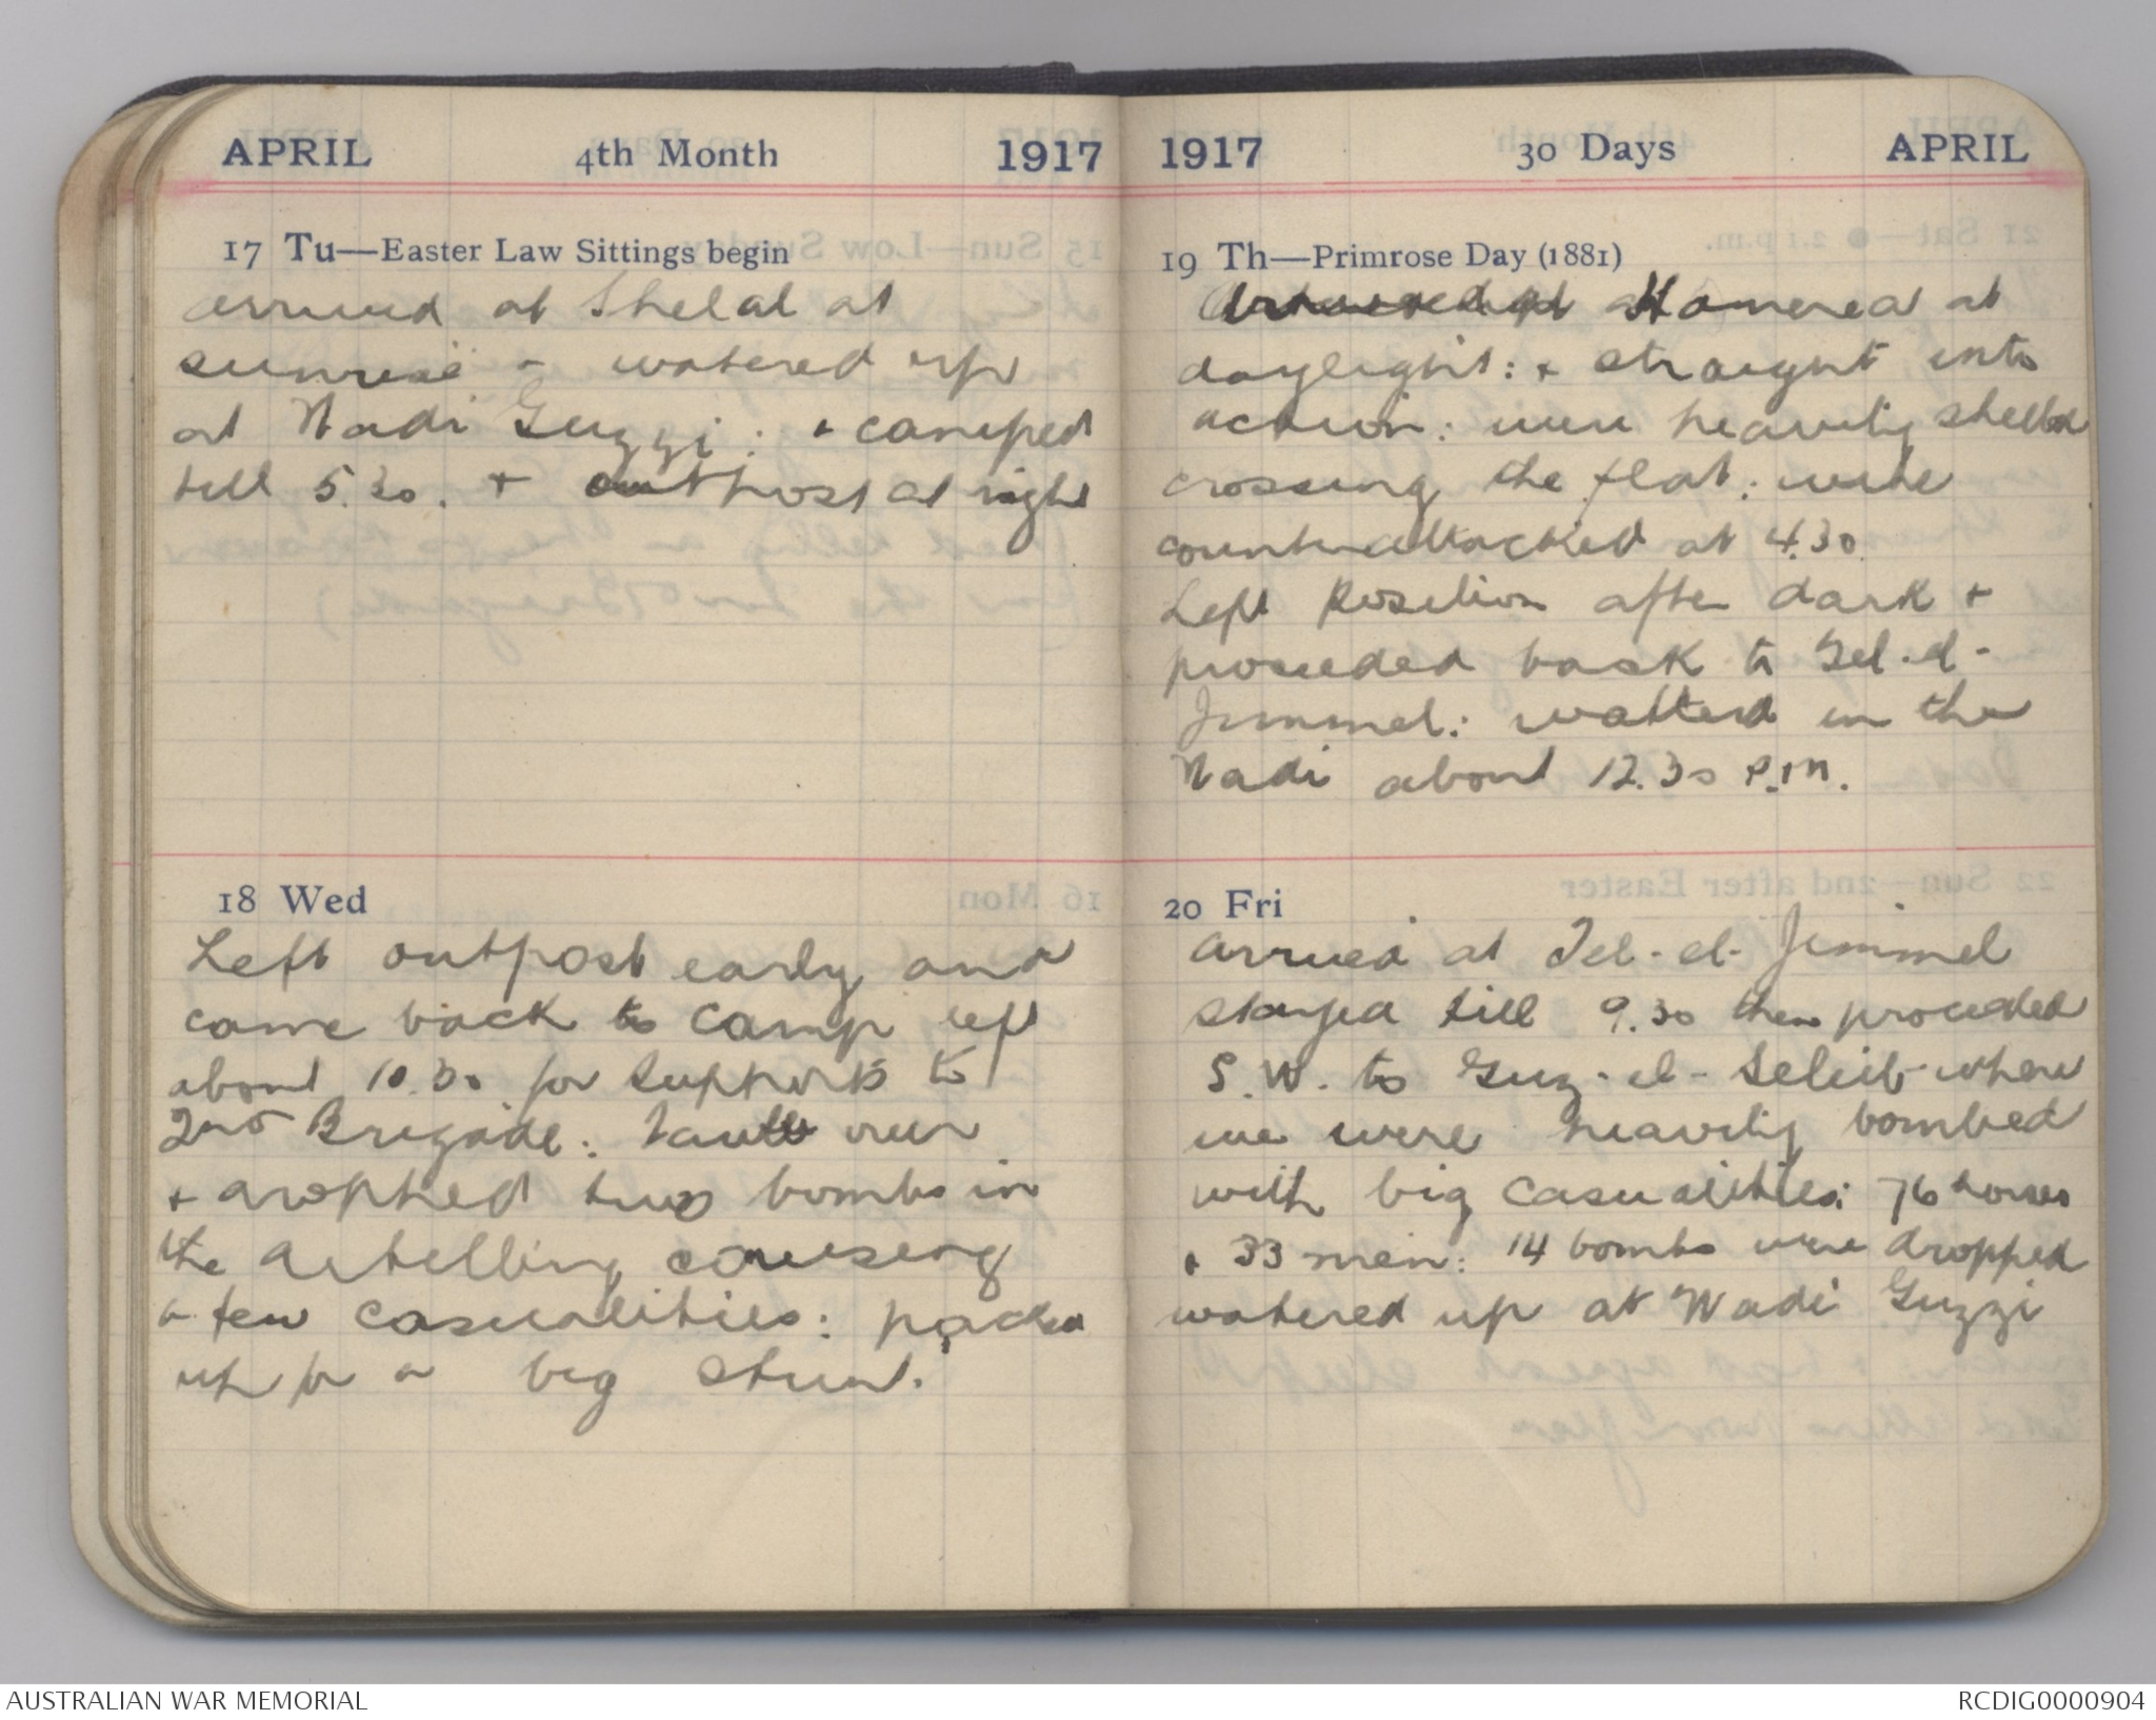 APRIL 4th Month 1917
17 Tu—Easter Law Sittings begin
arrived at Shelal at
sunrise + watered up
at Wadi Guzzi: + camped
till 5.30. + outpost at night
18 Wed
Left outpost early and
came back to camp left
about 10.30 for supports to
2nd Brigade: over
+ dropped two bombs in
the artelling causing
a few casualities: packed
up for a big stunt.
1917 30 Days APRIL
19 Th—Primrose Day (1881)
at
daylight: + straight into
action: were heavily shelled
crossing the flat: were
counterattacked at 4.30
Left Position after dark +
proceeded back to Tel-el-
Jimmel: watterd in the
Wadi about 12.30 P.M.
20 Fri
arrived at Tel-el-Jimmel
stayed till 9.30 then proceeded
S.W. to Guz-el-Seleib where
we were heavily bombed
with big casualities: 76 horses
+ 33 men: 14 bombs were dropped
watered up at Wadi Guzzi
AUSTRALIAN WAR MEMORIAL
RCDIG0000904